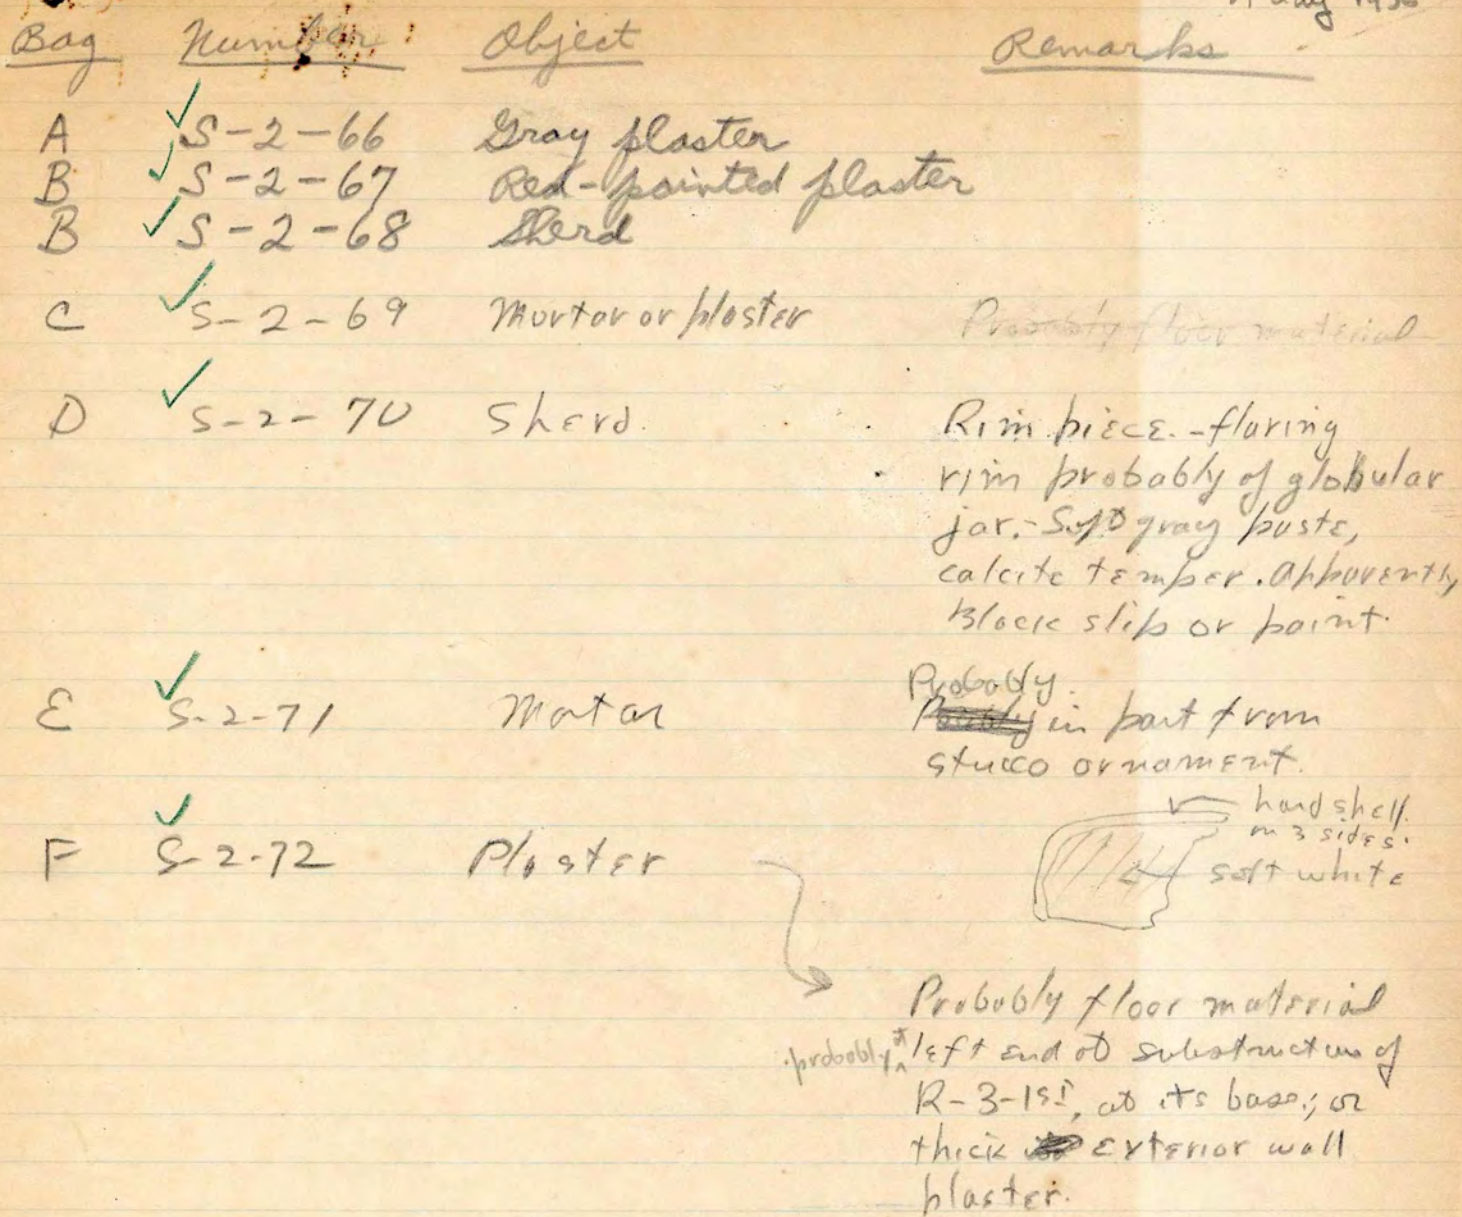 May 1936
Bag Number Object Remarks
A S-2-66 Gray plaster
B S-2-67 Red-painted plaster
B S-2-68 Sherd
C S-2-69 Mortar or plaster Probably floor material
D S-2-70 Sherd. Rim piece.-flaring
rim probably of globular
jar.-Soft gray paste,
calcite temper. Apparently
Black slip or paint.
Probably
E S-2-71 Mortar in part from
stucco ornament.
hard shell
on 3 sides.
F S-2-72 Plaster soft white
Probably floor material
probably at left end of substructure of
R-3-1st, at its base; or
thick exterior wall
plaster.